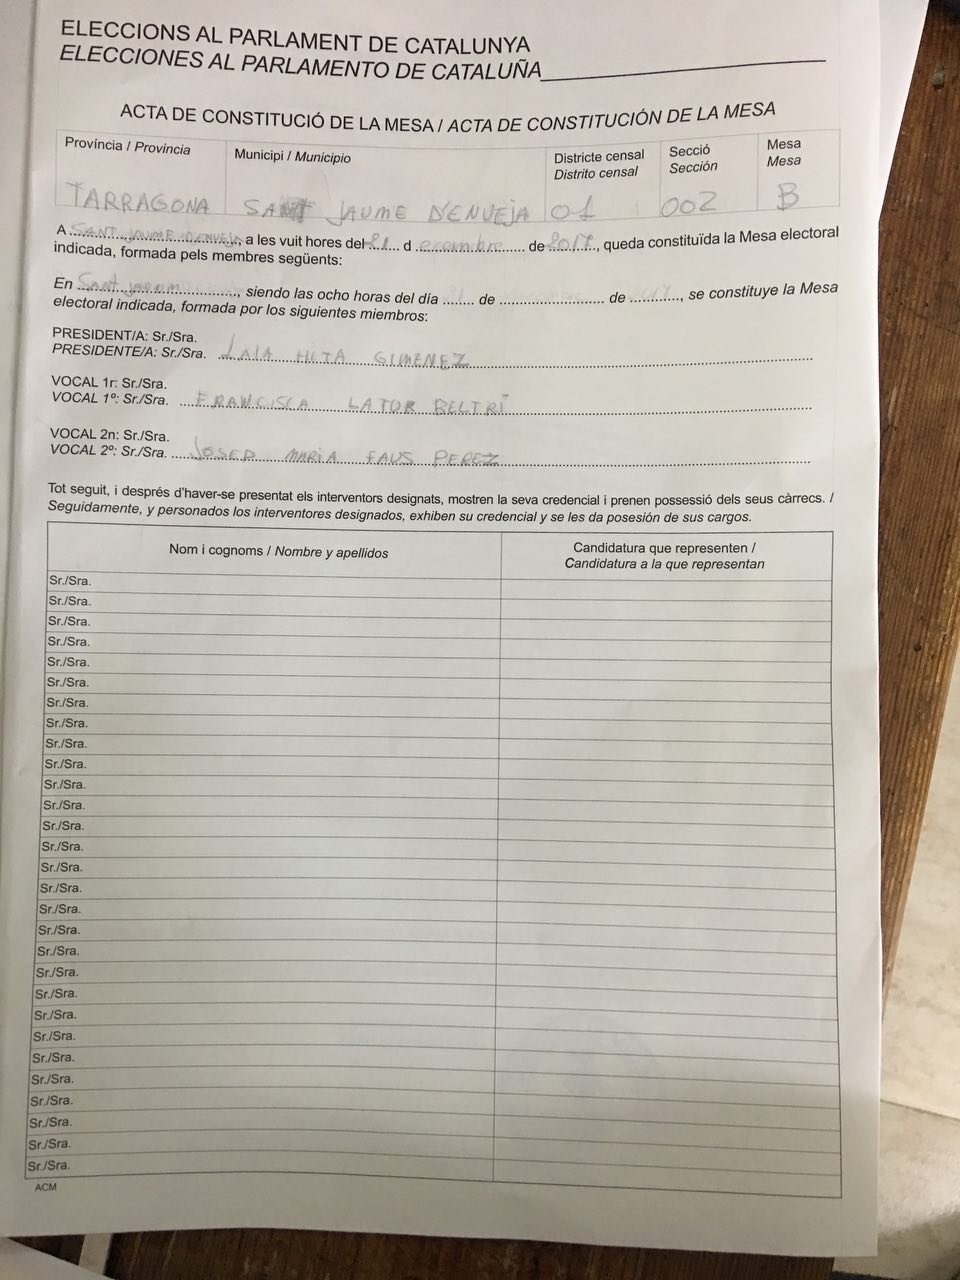 ELECCIONS AL PARLAMENT DE CATALUNYA
ELECCIONES AL PARLAMENTO DE CATALUÑA
ACTA DE CONSTITUCIÓ DE LA MESA / ACTA DE CONSTITUCIÓN DE LA MESA
Província / Provincia
Municipi / Municipio
Districte censal
Distrito censal
Secció
Sección
Mesa
Mesa
TARRAGONA SANT JAUME D'ENVEJA 01 002 B
A SANT JAUME D'ENVEJA, a les vuit hores del 21 d desembre de 2017, queda constituïda la Mesa electoral
indicada, formada pels membres següents:
En Sant Jaume, siendo las ocho horas del día de de , se constituye la Mesa
electoral indicada, formada por los siguientes miembros:
PRESIDENT/A: Sr./Sra.
PRESIDENTE/A: Sr./Sra. LAIA GIMENEZ
VOCAL 1r: Sr./Sra.
VOCAL 1º: Sr./Sra. FRANCISCA LATOR BELTRÍ
VOCAL 2n: Sr./Sra.
VOCAL 2º: Sr./Sra. JOSEP MARIA FAUS PEREZ
Tot seguit, i després d'haver-se presentat els interventors designats, mostren la seva credencial i prenen possessió dels seus càrrecs. /
Seguidamente, y personados los interventores designados, exhiben su credencial y se les da posesión de sus cargos.
Nom i cognoms / Nombre y apellidos
Candidatura que representen /
Candidatura a la que representan
Sr./Sra.
Sr./Sra.
Sr./Sra.
Sr./Sra.
Sr./Sra.
Sr./Sra.
Sr./Sra.
Sr./Sra.
Sr./Sra.
Sr./Sra.
Sr./Sra.
Sr./Sra.
Sr./Sra.
Sr./Sra.
Sr./Sra.
Sr./Sra.
Sr./Sra.
Sr./Sra.
Sr./Sra.
Sr./Sra.
Sr./Sra.
Sr./Sra.
Sr./Sra.
Sr./Sra.
Sr./Sra.
Sr./Sra.
Sr./Sra.
Sr./Sra.
Sr./Sra.
ACM